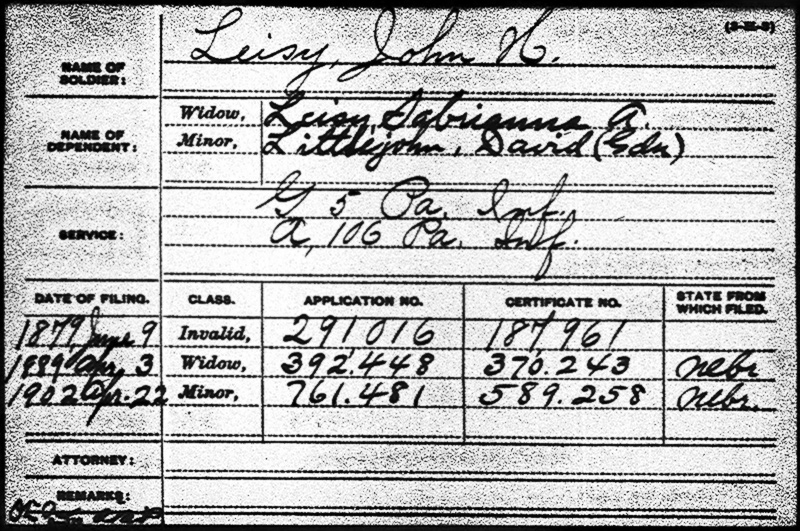 (3-III-3)
NAME OF SOLDIER: Leisy, John H.
NAME OF DEPENDENT: Widow, Leisy, Sabrianna A.
Minor, Littlejohn, David (Gdn)
SERVICE: G 5 Pa. Inf.
A, 106 Pa. Inf.
DATE OF FILING. CLASS. APPLICATION NO. CERTIFICATE NO. STATE FROM WHICH FILED.
1879, June 9 Invalid, 291016 187961
1889 Apr, 3 Widow, 392,448 370.243 Nebr
1902 Apr. 22 Minor, 761.481 589.258 Nebr.
ATTORNEY:
REMARKS: